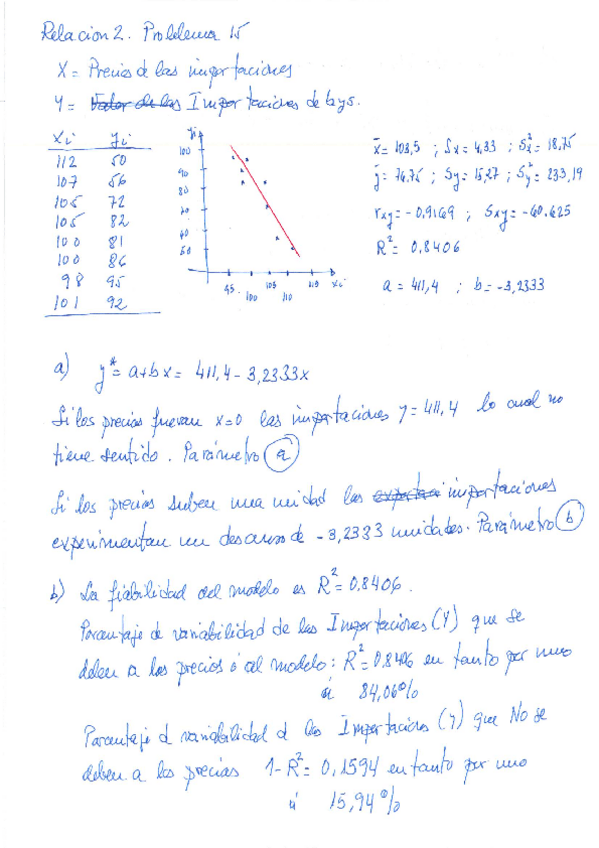 Relacion 2. Problema 15
X = Precios de las importaciones
Y = Valor de las Importaciones de bys.
xi yi
112 50
107 56
105 72
105 82
100 81
100 86
98 95
101 92
yi
100
90
80
70
60
50
95 100 105 110 115 xi
x̄ = 103,5 ; Sx = 4,33 ; Sx² = 18,75
ȳ = 76,75 ; Sy = 15,27 ; Sy² = 233,19
rxy = -0,9169 ; Sxy = -60.625
R² = 0,8406
a = 411,4 ; b = -3,2333
a) y* = a + bx = 411,4 - 3,2333x
Si los precios fueran x=0 las importaciones y = 411,4 lo cual no
tiene sentido. Parámetro a
Si los precios suben una unidad las importaciones
experimentan un descenso de -3,2333 unidades. Parámetro b
b) La fiabilidad del modelo es R² = 0,8406.
Porcentaje de variabilidad de las Importaciones (Y) que se
deben a los precios ó al modelo: R² = 0,8406 en tanto por uno
ó 84,06%
Porcentaje d variabilidad d las Importacions (Y) que No se
deben a los precios 1-R² = 0,1594 en tanto por uno
ó 15,94%